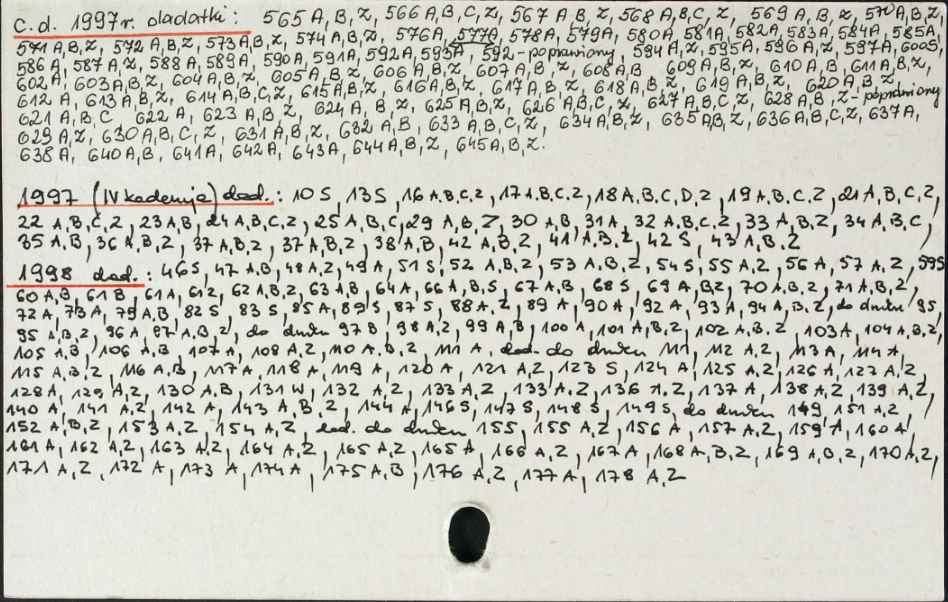 c.d. 1997r. dodatki: 565 A,B,Z, 566 A,B,C,Z, 567 A,B,Z, 568 A,B,C,Z, 569 A,B,Z, 570 A,B,Z,
571 A,B,Z, 572 A,B,Z, 573 A,B,Z, 574 A,B,Z, 576A, 577A, 578A, 579A, 580A, 581A, 582A, 583A, 584A, 585A,
586 A, 587 A,Z, 588 A, 589A, 590A, 591A, 592A, 593A, 592 - poprawiony, 594 A,Z, 595A, 596 A,Z, 597A, 600S,
602A, 603 A,B,Z, 604 A,B,Z, 605 A,B,Z, 606 A,B,Z, 607 A,B,Z, 608 A,B 609 A,B,Z, 610 A,B 611 A,B,Z,
612 A, 613 A,B,Z, 614 A,B,C,Z, 615 A,B,Z, 616 A,B,Z, 617 A,B,Z, 618 A,B,Z, 619 A,B,Z, 620 A,B,Z,
621 A,B,C 622 A, 623 A,B,Z, 624 A,B,Z, 625 A,B,Z, 626 A,B,C,Z, 627 A,B,C,Z, 628 A,B,Z - poprawiony
629 A,Z, 630 A,B,C,Z, 631 A,B,Z, 632 A,B, 633 A,B,C,Z, 634 A,B,Z, 635 A,B,Z, 636 A,B,C,Z, 637A,
638 A, 640 A,B, 641A, 642A, 643A, 644 A,B,Z, 645 A,B,Z.
1997 (IV kadencja) dod.: 10 S, 13 S, 16 A.B.C.Z, 17 A.B.C.Z, 18 A.B.C.D.Z, 19 A.B.C.Z, 21 A,B,C,Z,
22 A,B,C,Z, 23 A,B, 24 A,B,C,Z, 25 A,B,C, 29 A,B,Z, 30 A,B, 31A, 32 A.B.C.Z, 33 A,B,Z, 34 A,B,C,
35 A,B, 36 A,B,Z, 37 A,B,Z, 37 A,B,Z, 38 A,B, 42 A,B,Z, 41 A,B,Z, 42 S, 43 A,B,Z
1998 dod.: 46S, 47 A,B, 48 A,Z, 49 A, 51 S, 52 A,B,Z, 53 A,B,Z, 54 S, 55 A,Z, 56 A, 57 A,Z, 59S
60 A,B, 61 B, 61 A, 61 Z, 62 A,B,Z, 63 A,B, 64 A, 66 A,B,S, 67 A,B, 68 S, 69 A,B,Z, 70 A,B,Z, 71 A,B,Z,
72 A, 73 A, 79 A,B, 82 S, 83 S, 85 A, 89 S, 87 S, 88 A,Z, 89 A, 90 A, 92 A, 93 A, 94 A,B,Z, do druku 95,
95 A,B,Z, 96 A, 97 A,B,Z, do druku 97 B, 98 A,Z, 99 A,B, 100 A, 101 A,B,Z, 102 A,B,Z, 103A, 104 A,B,Z,
105 A,B, 106 A,B, 107 A, 108 A,Z, 110 A,B,Z, 111 A, dod. do druku 111, 112 A,Z, 113 A, 114 A,
115 A,B,Z, 116 A,B, 117 A, 118 A, 119 A, 120 A, 121 A,Z, 123 S, 124 A, 125 A,Z, 126 A, 127 A,Z,
128A, 129 A,Z, 130 A,B, 131 W, 132 A,Z, 133 A,Z, 133 A,Z, 136 A,Z, 137 A, 138 A,Z, 139 A,Z,
140 A, 141 A,Z, 142 A, 143 A,B,Z, 144 A, 146 S, 147 S, 148 S, 149 S, do druku 149, 151 A,Z,
152 A,B,Z, 153 A,Z, 154 A,Z, dod. do druku 155, 155 A,Z, 156 A, 157 A,Z, 159 A, 160 A
161 A, 162 A,Z, 163 A,Z, 164 A,Z, 165 A,Z, 165 A, 166 A,Z, 167 A, 168 A,B,Z, 169 A,B,Z, 170 A,Z,
171 A,Z, 172 A, 173 A, 174 A, 175 A,B, 176 A,Z, 177 A, 178 A,Z